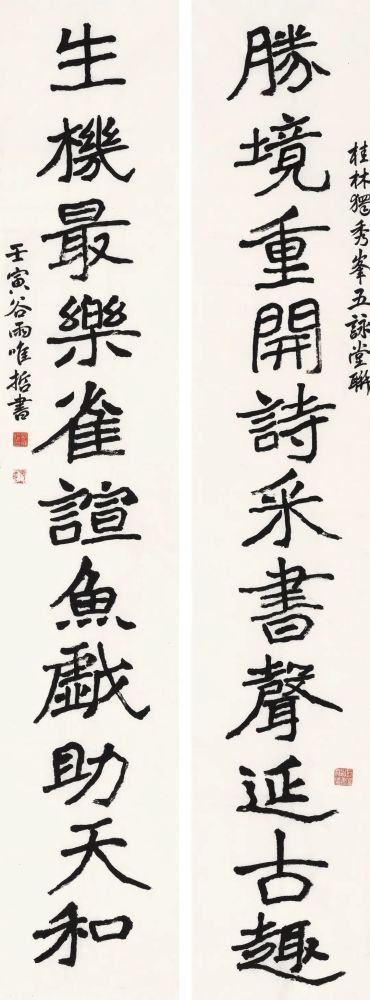 桂林獨秀峯五詠堂聯
勝境重開詩采書聲延古趣
生機最樂雀諠魚戲助天和
壬寅谷雨唯哲書